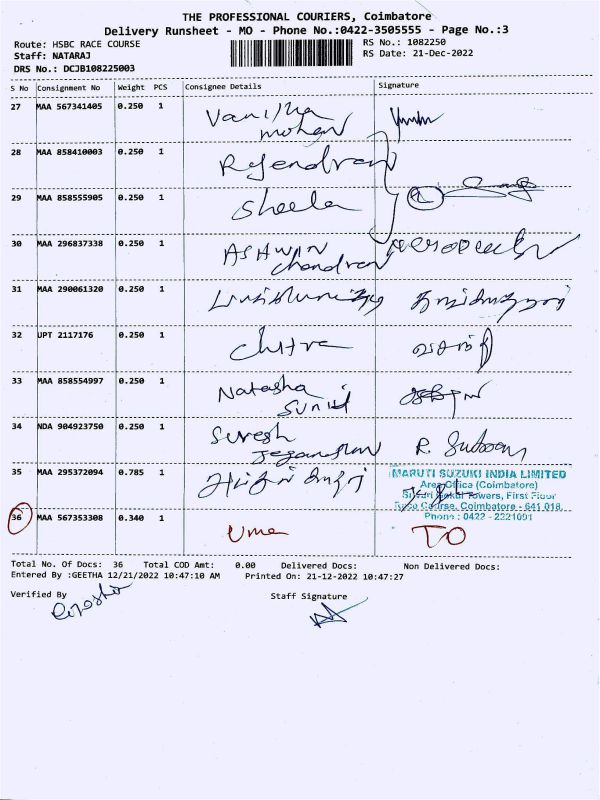 THE PROFESSIONAL COURIERS, Coimbatore
Delivery Runsheet - MO - Phone No.:0422-3505555 - Page No.:3
Route: HSBC RACE COURSE
RS No.: 1082250
Staff: NATARAJ
RS Date: 21-Dec-2022
DRS No.: DCJB108225003
S No Consignment No Weight PCS Consignee Details Signature
27 MAA 567341405 0.250 1 Vanitha
mohan
28 MAA 858410003 0.250 1 Rajendran
29 MAA 858555905 0.250 1 Sheela
30 MAA 296837338 0.250 1 ASHWIN
chandran
31 MAA 290061320 0.250 1
32 UPT 2117176 0.250 1 Chitra
33 MAA 858554997 0.250 1 Natasha
Sunil
34 NDA 904923750 0.250 1 Suresh
R.
35 MAA 295372094 0.785 1
MARUTI SUZUKI INDIA LIMITED
Area Office (Coimbatore)
Towers, First Floor
Race Course, Coimbatore - 641 018.
Phone : 0422 - 2221091
36 MAA 567353308 0.340 1 Uma TO
Total No. Of Docs: 36 Total COD Amt: 0.00 Delivered Docs: Non Delivered Docs:
Entered By :GEETHA 12/21/2022 10:47:10 AM Printed On: 21-12-2022 10:47:27
Verified By
Staff Signature